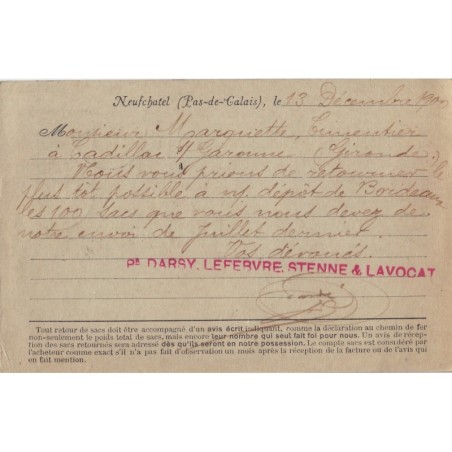 Neufchatel (Pas-de-Calais), le 13 Décembre 190
Monsieur Marquette, Cimentier
à Cadillac s/ Garonne (Gironde)
Nous vous prions de retourner le
plus tôt possible à n/ dépôt de Bordeaux
les 100 sacs que vous nous devez de
notre envoi de Juillet dernier.
Vos dévoués.
Pn DARSY, LEFEBVRE, STENNE & LAVOCAT
Tout retour de sacs doit être accompagné d'un avis écrit indiquant, comme la déclaration au chemin de fer
non-seulement le poids total de sacs, mais encore leur nombre qui seul fait foi pour nous. Un avis de récep-
tion des sacs retournés sera adressé dès qu'ils seront en notre possession. Le compte sacs est considéré par
l'acheteur comme exact s'il n'a pas fait d'observation un mois après la réception de la facture ou de l'avis qui
en fait mention.